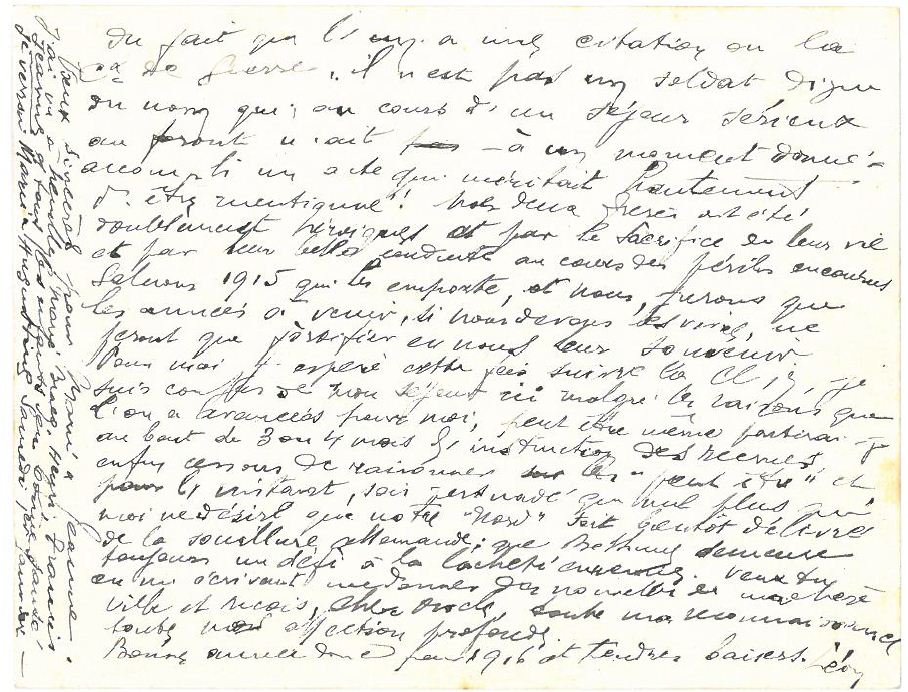 du fait que l'on a une citation ou la
Cx de Guerre, il n'est pas un soldat digne
du nom qui, au cours d'un séjour sérieux
au front n'ait pas - à un moment donné -
accompli un acte qui méritait hautement
d'être mentionné! Nos deux frères ont été
doublement héroïques et par le sacrifice de leur vie
et par leur belle conduite au cours des périls encourus
Saluons 1915 qui les emporte, et nous, jurons que
les années à venir, si nous devons les vivre, ne
feront que fortifier en nous leur souvenir
Pour moi, j'espère cette fois suivre la Cl 17, je
suis confus de mon séjour ici malgré les raisons que
l'on a avancées pour moi, peut être même partirai-je
au bout de 3 ou 4 mois d'instruction des recrues
enfin cessons de raisonner sur les "peut être" et
pour l'instant, sois persuadé que nul plus que
moi ne désire que notre "Nord" soit bientôt délivré
de la souillure allemande; que Béthune demeure
toujours un défi à la lâcheté ennemie. Veux tu
en m'écrivant me donner des nouvelles de ma chère
ville et reçois, cher oncle, toute ma reconnaissance
toute mon affection profonde.
Bonne année donc pour 1916 et tendres baisers. Léon
Vœux sincères pour Maria Jeanne.
J'ai vu à Henri, Francis,
Jeanne et tous les enfants
Je verrai Marie Augustine samedi